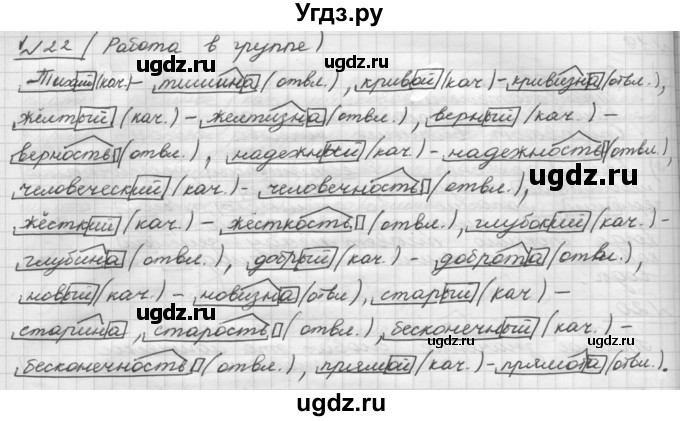 Угдз.ру
№22 (Работа в группе)
Тихий (кач.) – тишина (отвл.), кривой (кач.) – кривизна (отвл.),
жёлтый (кач.) – желтизна (отвл.), верный (кач.) –
верность (отвл.), надежный (кач.) – надежность (отвл.),
человеческий (кач.) – человечность (отвл.),
жёсткий (кач.) – жёсткость (отвл.), глубокий (кач.) –
глубина (отвл.), добрый (кач.) – доброта (отвл.),
новый (кач.) – новизна (отвл.), старый (кач.) –
старина, старость (отвл.), бесконечный (кач.) –
бесконечность (отвл.), прямой (кач.) – прямота (отвл.).
ugdz.ru
ugdz.ru
ugdz.ru
ugdz.ru
ugdz.ru
ugdz.ru
ugdz.ru
ugdz.ru